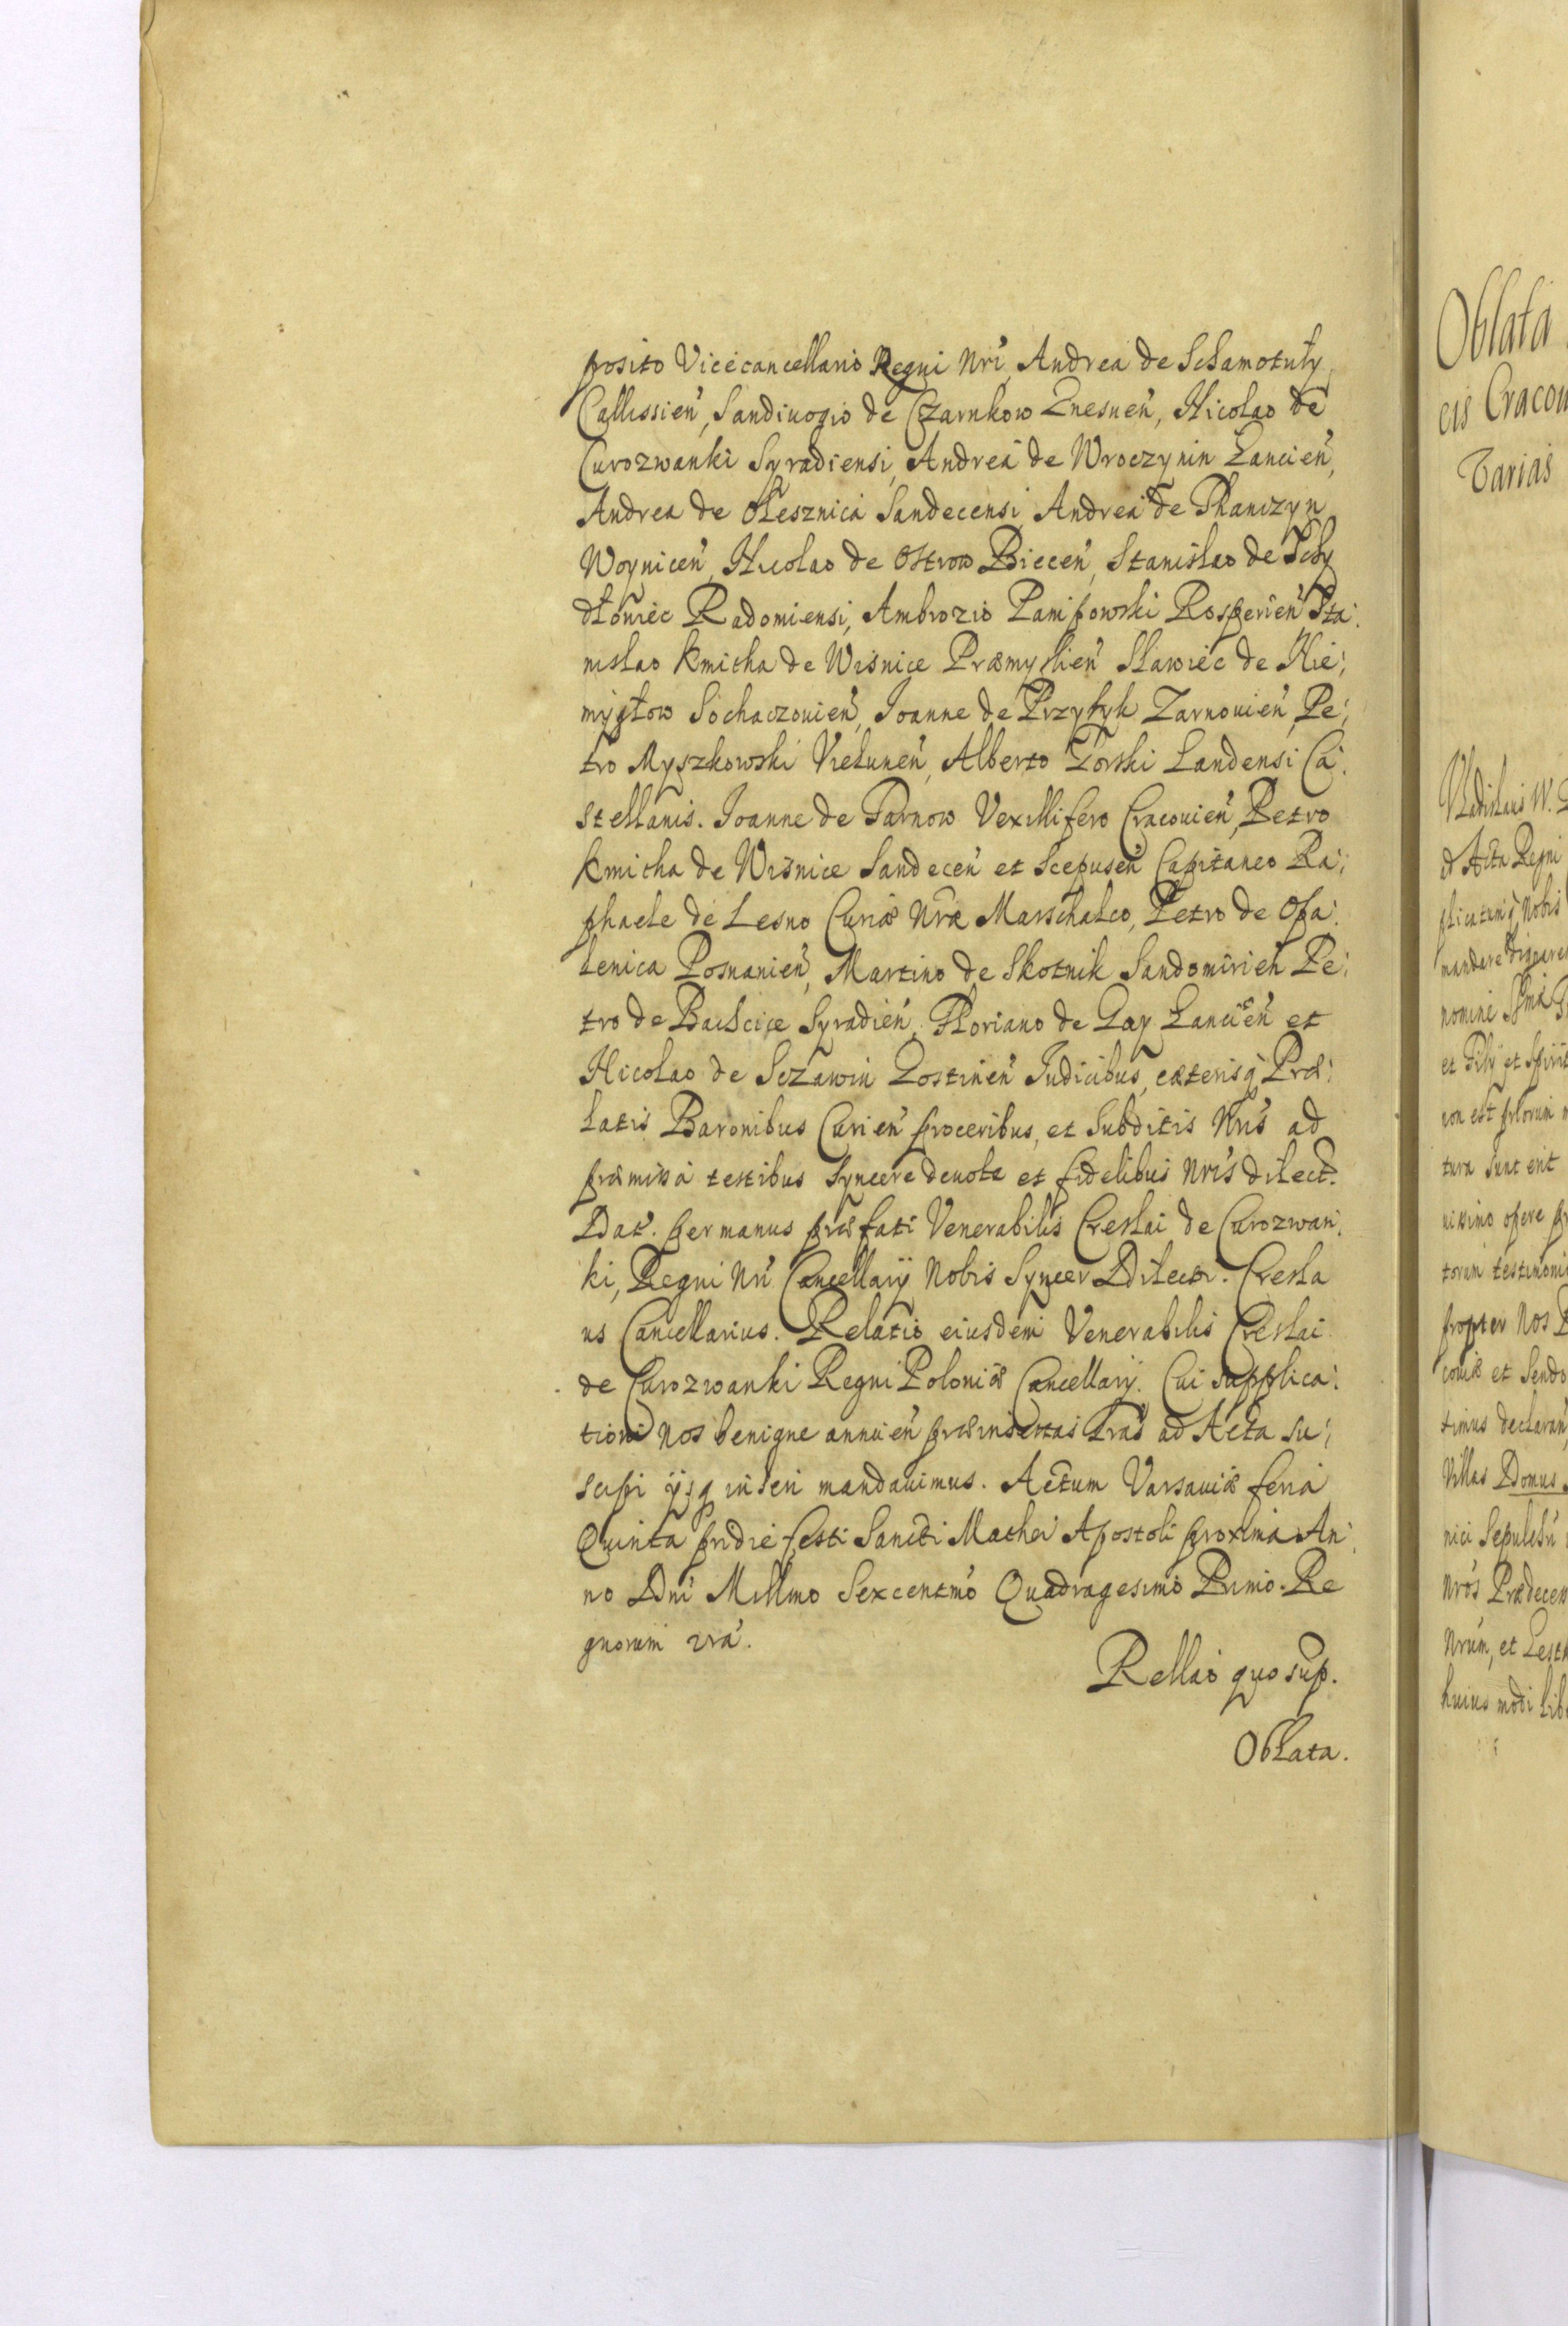 posito Vicecancellario Regni Nri, Andrea de Schamotuły
Callissien, Sandiuogio de Czarnkow Gnesnen, Nicolao de
Curozwanki Syradiensi, Andrea de Wroczynin Lancien,
Andrea de Olesznica Sandecensi, Andrea de Thanczyn
Woynicen, Nicolao de Ostrow Biecen, Stanislao de Schy
dłowiec Radomiensi, Ambrozio Pampowski Rosperien Sta:
nislao Kmitha de Wisnice Præmyslien Sławiec de Nie:
mygłow Sochaczouien, Joanne de Przytyk Zarnouien, Pe:
tro Myszkowski Vielunen, Alberto Gorski Landensi Ca:
stellanis. Joanne de Tarnow Vexillifero Cracouien, Petro
Kmitha de Wisnice Sandecen et Scepusen Capitaneo Ra:
phaele de Lesno Curiæ Nræ Marschalco, Petro de Opa:
lenica Posnanien, Martino de Skotnik Sandomirien Pe:
tro de Syradien, Floriano de Gay Lancien et
Nicolao de Sczawin Gostinien Judicibus, cæterisq Præ:
latis Baronibus Curien proceribus, et Subditis Nris ad
præmissa testibus Syncere deuote et fidelibus Nris dilect.
Dat. per manus præfati Venerabilis Creslai de Curozwan:
ki, Regni Nri Cancellarij Nobis Syncer Dilecti. Cresla
us Cancellarius. Relatio eiusdem Venerabilis Creslai
de Curozwanki Regni Poloniæ Cancellarij. Cui supplica:
tioni Nos benigne annuen præinsertas Lras ad Acta su:
scipi ijsq inseri mandauimus. Actum Varsauiæ feria
Quinta pridie festi Sancti Mathei Apostoli proxima An:
no Dni Millmo Sexcentmo Quadragesimo Primo. Re
gnorum vra.
Rellaõ quo sup.
Oblata.
Oblata
cis Cracou
Varias
Vladislaus W.
ad Acta Regni
plicatumq Nobis
mandare
nomine
et Filij et Spirit
non est
tura sunt erit
nissimo opere
torum testimoni
propter Nos
couiæ et Sendo
timus declaran
Villas Domus
nici Sepulchri
Nros Prædecess
Nrum, et
huius modi lib